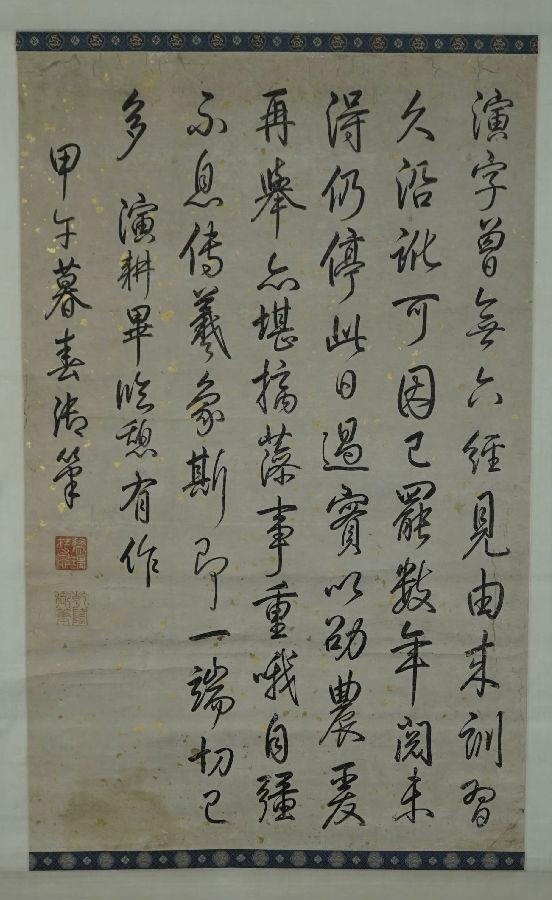 演字曾無六經見由來訓習
久沿訛可因已罷數年閱未
得仍停此日過實以劭農爰
再舉亦堪摛藻事重哦自彊
不息傳羲象斯即一端切己
多 演耕畢臨憩有作
甲午暮春御筆
乾隆御筆